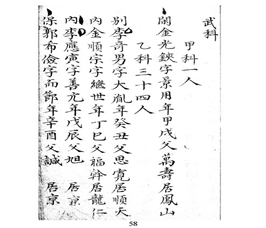 武科
甲科一人
閑金光鋏字景用年甲戌父萬壽居鳳山
乙科三十四人
别李奇男字大胤年癸丑父思寛居順天
内金順宗字繼世年丁巳父福幹居龍仁
内李應寅字善元年戊辰父旭居京
保郭布儉字而節年辛酉父誠居京
58